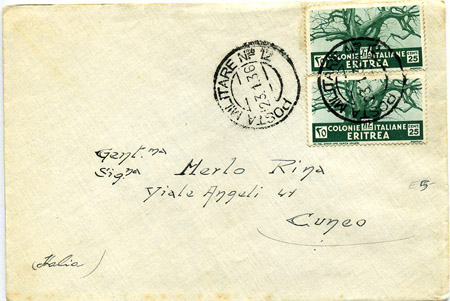 POSTA MILITARE Nº 12
23.1.36
COLONIE ITALIANE
ERITREA
CENT. 25
COLONIE ITALIANE
ERITREA
CENT. 25
Gent.ma
Sig.na Merlo Rina
Viale Angeli 41
Cuneo
(Italia)